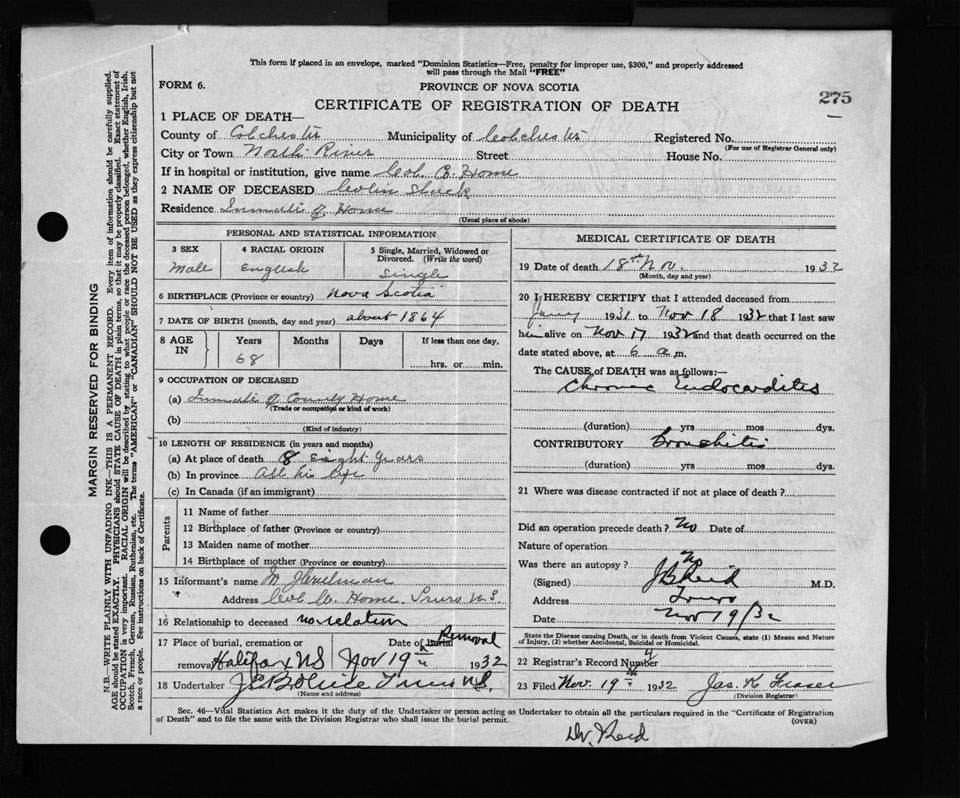 This form if placed in an envelope, marked "Dominion Statistics—Free, penalty for improper use, $300," and properly addressed
will pass through the Mail "FREE"
FORM 6.
PROVINCE OF NOVA SCOTIA
275
CERTIFICATE OF REGISTRATION OF DEATH
1 PLACE OF DEATH—
County of Colchester Municipality of Colchester Registered No.
(For use of Registrar General only)
City or Town North River Street House No.
If in hospital or institution, give name Col. Co. Home
2 NAME OF DECEASED Colin
Residence Inmate of Home
(Usual place of abode)
PERSONAL AND STATISTICAL INFORMATION
3 SEX 4 RACIAL ORIGIN 5 Single, Married, Widowed or Divorced. (Write the word)
Male English Single
6 BIRTHPLACE (Province or country) Nova Scotia
7 DATE OF BIRTH (month, day and year) about 1864
8 AGE IN Years Months Days If less than one day,
68 hrs. or min.
9 OCCUPATION OF DECEASED
(a) Inmate of County Home
(Trade or occupation or kind of work)
(b)
(Kind of industry)
10 LENGTH OF RESIDENCE (in years and months)
(a) At place of death 8 Eight Years
(b) In province All his life
(c) In Canada (if an immigrant)
Parents
11 Name of father
12 Birthplace of father (Province or country)
13 Maiden name of mother
14 Birthplace of mother (Province or country)
15 Informant's name
" Address Col. Co. Home Truro N.S.
16 Relationship to deceased no relation
17 Place of burial, cremation or Date of Burial Removal
removal Halifax NS Nov 19th 1932
18 Undertaker Truro N.S.
(Name and address)
MEDICAL CERTIFICATE OF DEATH
19 Date of death 18th Nov. 1932
(Month, day and year)
20 I HEREBY CERTIFY that I attended deceased from
1931 to Nov 18 1932 that I last saw
him alive on Nov 17 1932 and that death occurred on the
date stated above, at 6 a.m.
The CAUSE of DEATH was as follows:—
Chronic Endocarditis
(duration) yrs mos dys.
CONTRIBUTORY Bronchitis
(duration) yrs mos dys.
21 Where was disease contracted if not at place of death?
Did an operation precede death? No Date of
Nature of operation
Was there an autopsy? No
(Signed) Reid M.D.
Address Truro
Date Nov 19/32
State the Disease causing Death, or in death from Violent Causes, state (1) Means and Nature
of Injury, (2) whether Accidental, Suicidal or Homicidal.
22 Registrar's Record Number
23 Filed Nov. 19th 1932 Jas. K. Fraser
(Division Registrar)
Sec. 46—Vital Statistics Act makes it the duty of the Undertaker or person acting as Undertaker to obtain all the particulars required in the "Certificate of Registration
of Death" and to file the same with the Division Registrar who shall issue the burial permit.
(OVER)
Dr. Reid
MARGIN RESERVED FOR BINDING
N.B.—WRITE PLAINLY WITH UNFADING INK—THIS IS A PERMANENT RECORD. Every item of information should be carefully supplied.
AGE should be stated EXACTLY. PHYSICIANS should STATE CAUSE OF DEATH in plain terms, so that it may be properly classified. Exact statement of
OCCUPATION is very important. RACIAL ORIGIN will be described by stating to what people or race the deceased person belonged, whether English, Irish,
Scotch, French, German, Russian, Ruthenian, etc. The terms "AMERICAN" or "CANADIAN" SHOULD NOT BE USED as they express citizenship but not
a race or people. See instructions on back of Certificate.